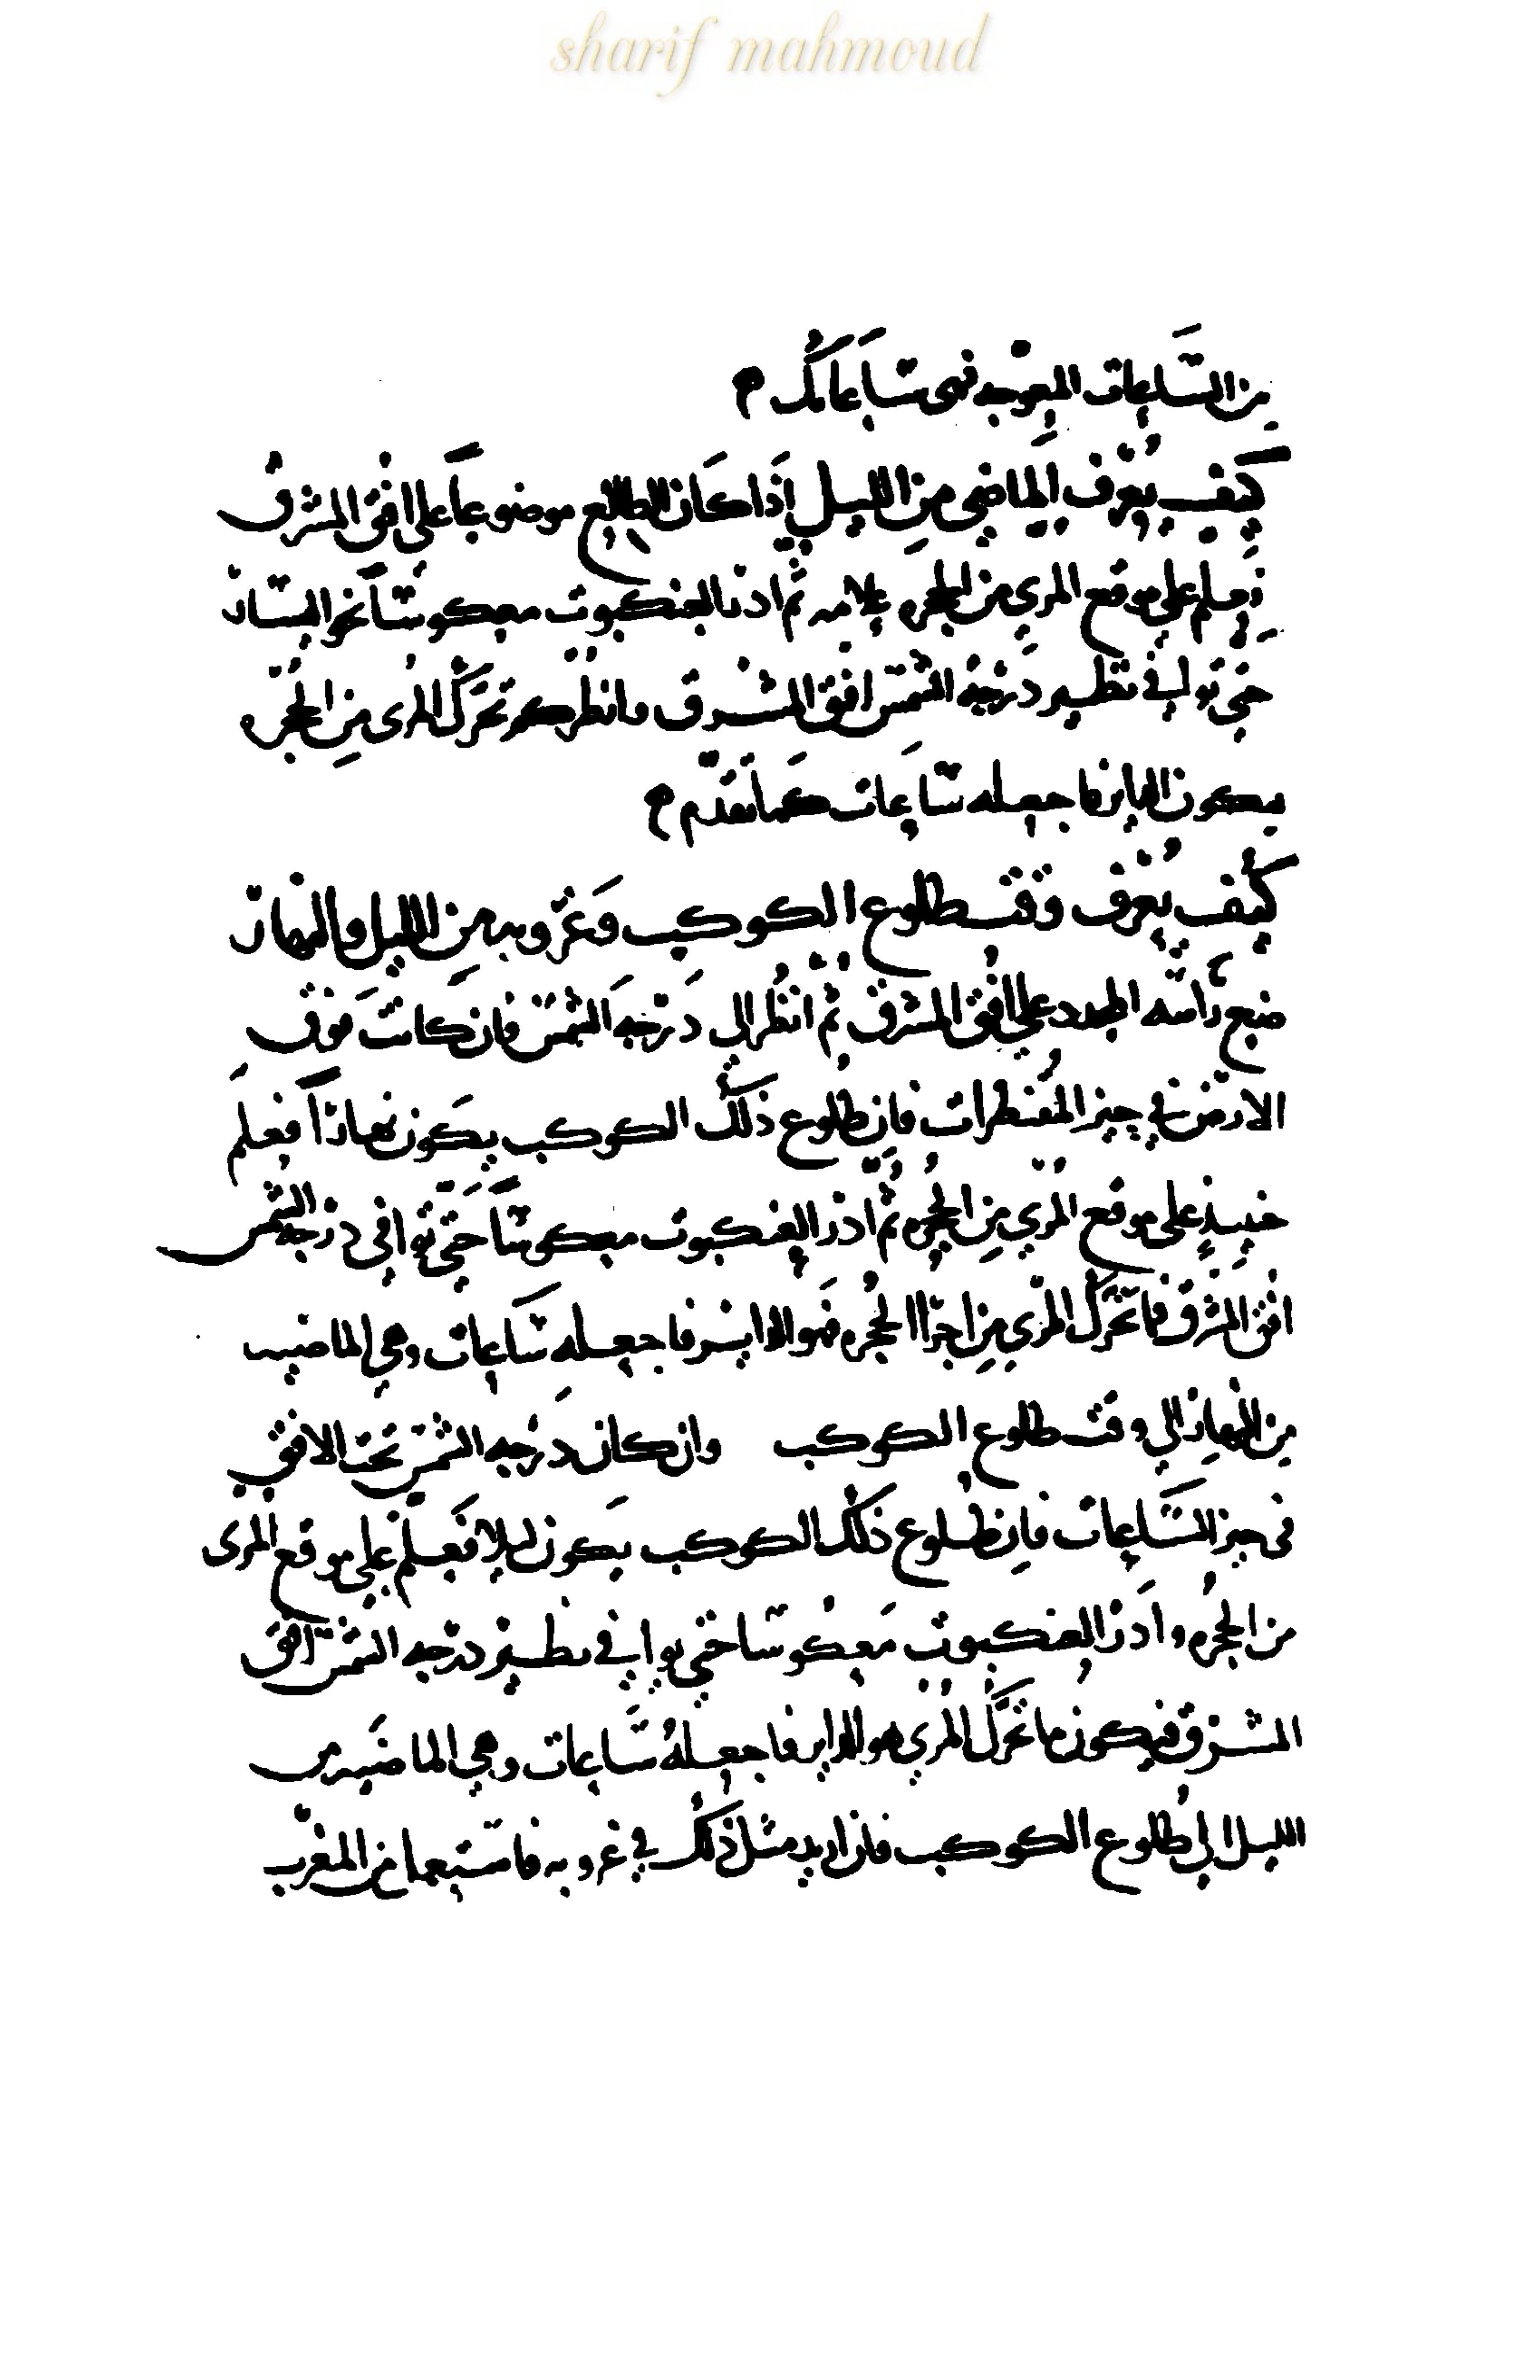 sharif mahmoud
من الساعات المعوجه فهى ساعاتك
كيف يعرف الماضي من الليل اذا كان الطالع موضوعا على افق المشرق
نعلم على موقع المري من الحجره علامه ثم ادر العنكبوت معكوسا نحو اليسار
حتى توافي نظير درجة الشمس افق المشرق وانظر كم تحرك المرى من الحجره
فيكون الداير فاجعله ساعات كما تقدم
كيف يعرف وقت طلوع الكوكب وغروبه من الليل والنهار
ضع راسه المحدد على افق المشرق ثم انظر الى درجه الشمس فان كانت فوق
الارض في حيز المقنطرات فان طلوع ذلك الكوكب يكون نهارا فعلم
حينيذ على موقع المري من الحجره ثم ادر العنكبوت معكوسا حتى توافي درجة الشمس
افق المشرق فما تحرك المري من اجزا الحجره فهو الداير فاجعله ساعات وهي الماضيه
من النهار الى وقت طلوع الكوكب وان كان درجه الشمس تحت الافق
فى حيز الساعات فان طلوع ذلك الكوكب يكون ليلا فعلم على موقع المرى
من الحجره وادر العنكبوت معكوسا حتى توافي نظير درجه الشمس افق
المشرق فيكون ما تحرك المري هو الداير فاجعله ساعات وهي الماضيه من
الليل الى طلوع الكوكب فان اريد مثل ذلك في غروبه فاستعمل المغرب